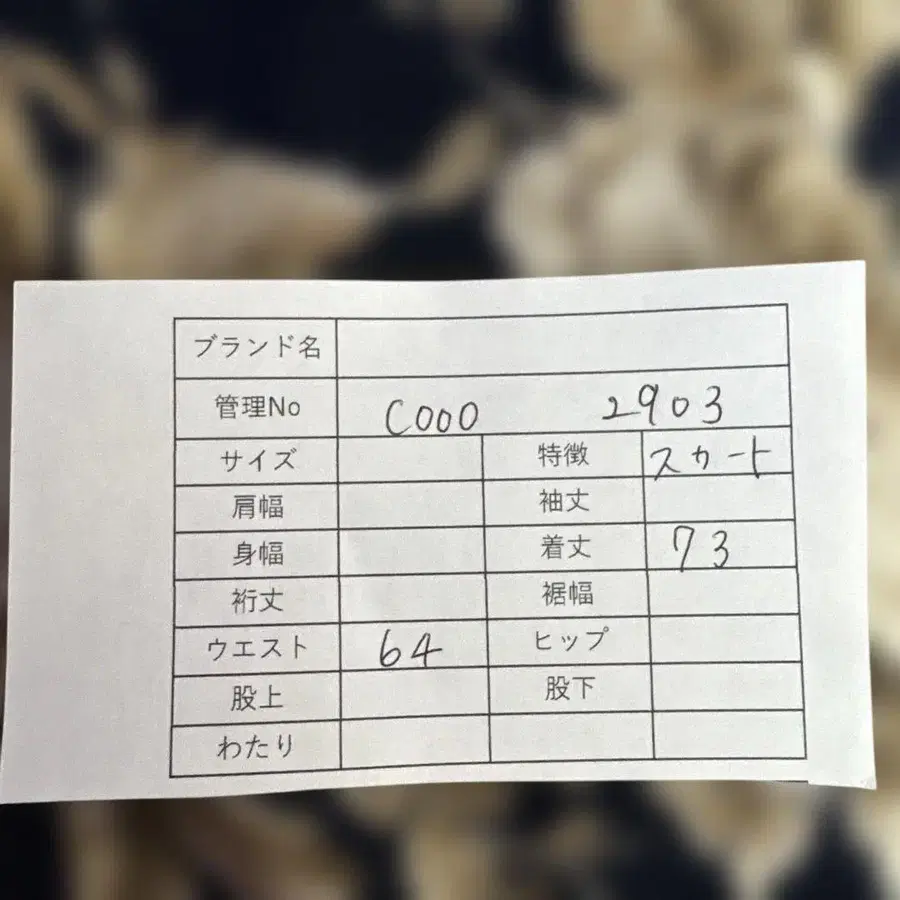 ブランド名
管理No C000 2903
サイズ 特徴 スカート
肩幅 袖丈
身幅 着丈 73
裄丈 裾幅
ウエスト 64 ヒップ
股上 股下
わたり